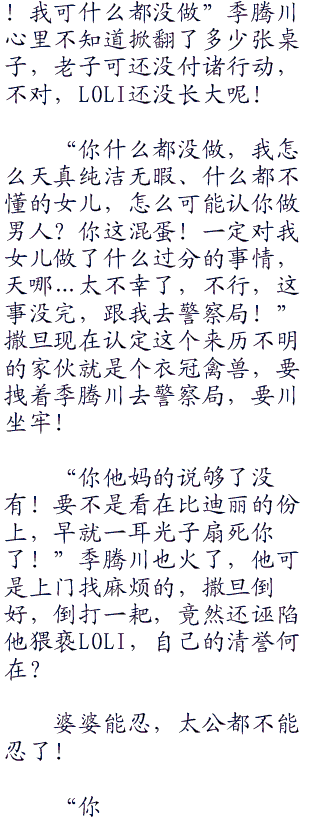 ！我可什么都没做”季腾川
心里不知道掀翻了多少张桌
子，老子可还没付诸行动，
不对，LOLI还没长大呢！
“你什么都没做，我怎
么天真纯洁无暇、什么都不
懂的女儿，怎么可能认你做
男人？你这混蛋！一定对我
女儿做了什么过分的事情，
天哪…太不幸了，不行，这
事没完，跟我去警察局！”
撒旦现在认定这个来历不明
的家伙就是个衣冠禽兽，要
拽着季腾川去警察局，要川
坐牢！
“你他妈的说够了没
有！要不是看在比迪丽的份
上，早就一耳光子扇死你
了！”季腾川也火了，他可
是上门找麻烦的，撒旦倒
好，倒打一耙，竟然还诬陷
他猥亵LOLI，自己的清誉何
在？
婆婆能忍，太公都不能
忍了！
“你